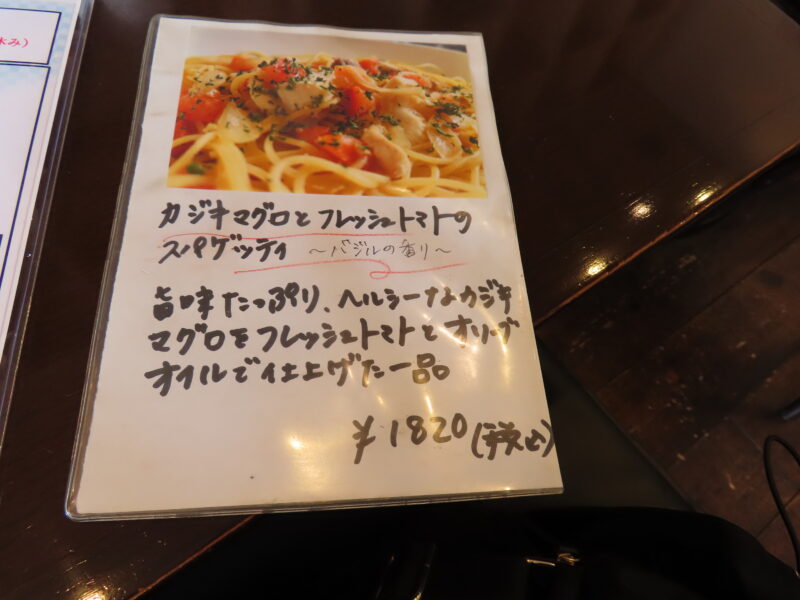 休み)
カジキマグロとフレッシュトマトの
スパゲッティ ～バジルの香り～
旨味たっぷり、ヘルシーなカジキ
マグロをフレッシュトマトとオリーブ
オイルで仕上げた一品
¥1820(税込)